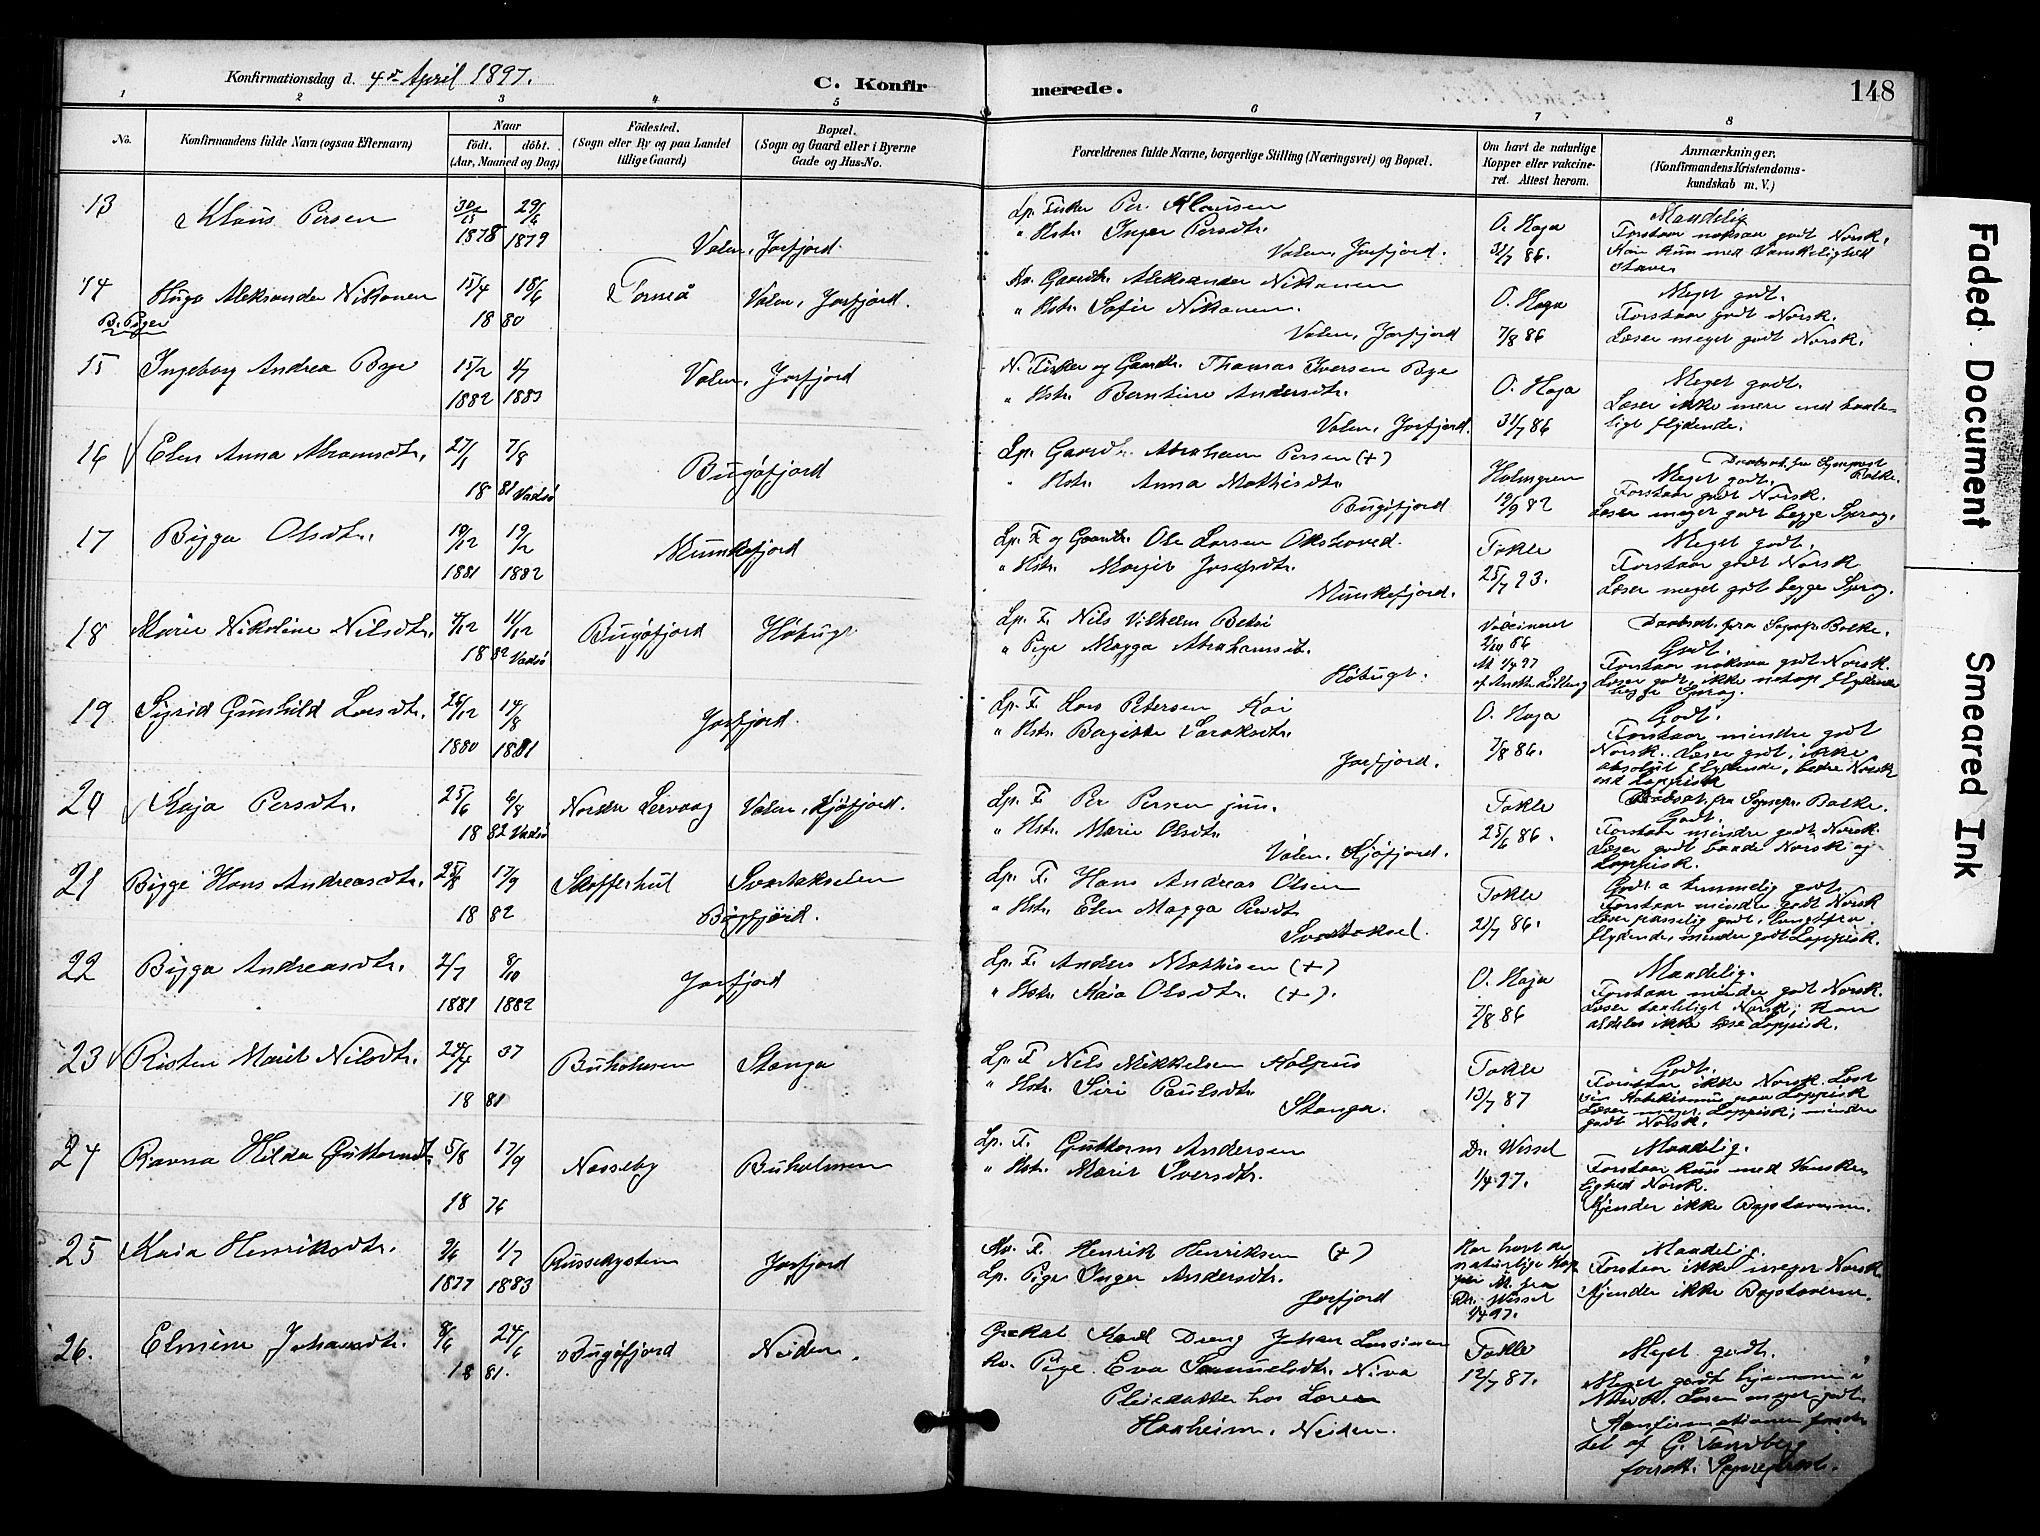 Konfirmationsdag d. 4de April 1897.
C. Konfirmerede.
148
1 2 3 4 5 6 7 8
No.
Konfirmandens fulde Navn (ogsaa Efternavn)
Naar
födt. döbt.
(Aar, Maaned og Dag)
Födested.
(Sogn eller By og paa Landet
tillige Gaard)
Bopæl.
(Sogn og Gaard eller i Byerne
Gade og Hus-No.
Forældrenes fulde Navne, borgerlige Stilling (Næringsvei) og Bopæl.
Om havt de naturlige
Kopper eller vakcine-
ret. Attest herom.
Anmærkninger.
(Konfirmandens Kristendoms-
kundskab m. V.)
13 Klaus Persen 1878 29/6 1879
Valen, Jarfjord.
Lp. Fisker Per Klausen
" Hstr. Inger Persdtr.
Valen, Jarfjord.
O. Haga
31/7 86.
Maadelig
Forstaar noksaa godt Norsk.
Kan kun med Vanskelighed
stave
14 Hugo Aleksander Niskanen 15/4 18/6 1880
Torneå
Valen, Jarfjord.
Kv. Gaardbr. Aleksander Niskanen
" Hstr. Sofie Niskanen.
Valen, Jarfjord
O. Haga
7/8 86
Meget godt.
Forstaar godt Norsk.
Læser meget godt Norsk.
B. Piger
15 Ingeborg Andrea Bye 15/12 1882 4/7 1883
Valen, Jarfjord
N. Fisker og Gaardbr. Thomas Iversen Bye
" Hstr. Berntine Andersdtr.
Valen, Jarfjord.
O. Haga
31/7 86
Meget godt.
Læser ikke mere end taale-
ligt flydende.
16 Elen Anna Abramsdtr. 27/1 7/8 1881 Vadsö
Bugöfjord
Lp. Gaardbr. Abraham Persen (+)
" Hstr. Anna Mathisdtr.
Bugöfjord
Holmgren
19/9 82
Daabsat. fra Sognepræst Balke.
Meget godt.
Forstaar godt Norsk.
Læser meget godt begge Sprog.
17 Bigga Olsdtr. 19/12 1881 19/2 1882
Munkefjord
Lp. F. og Gaardbr. Ole Larsen Okshoved.
" Hstr. Marit Josefsdtr.
Munkefjord.
Takle
25/7 93.
Meget godt.
Forstaar godt Norsk
Læser meget godt begge Sprog.
18 Marie Nikoline Nilsdtr. 4/12 11/12 1882 Vadsö
Bugöfjord Höbugt
Lp. F. Nils Vilhelm
" Pige Magga Abrahamsdtr.
Höbugt.
Vakcineret
At. 1/4 97
Daabsat. fra Sognepr. Balke.
Godt.
Forstaar noksaa godt Norsk.
Læser godt, ikke netop flydende
begge Sprog.
19 Sigrid Gunhild Larsdtr. 26/12 1880 14/8 1881
Jarfjord.
Lp. F. Lars Petersen Kai
" Hstr. Bagitte Saraksdtr.
Jarfjord.
O. Haga
7/8 86.
Godt.
Forstaar mindre godt
Norsk. Læser godt, ikke
absolut flydende, bedre Norsk
end Lappisk
20 Kaja Persdtr. 25/6 6/8 1882 Vadsö
Nordre Lervaag Valen, Kjöfjord.
Lp. F. Per Persen jun.
" Hstr. Marie Olsdtr.
Valen, Kjöfjord.
Takle
25/6 86.
Daabsat. fra Sognepr. Balke.
Godt.
Forstaar mindre godt Norsk.
Læser godt baade Norsk og
Lappisk.
21 Bigge Hans Andreasdtr. 25/8 17/9 1882
Skofferhul Svartakselen
Bögfjord.
Lp. F. Hans Andreas Olsen
" Hstr. Elen Magga Persdtr.
Svartaksel.
Takle
21/7 86.
Godt a temmelig godt.
Forstaar mindre godt Norsk
Læser passelig godt, langtfra
flydende, mindre godt Lappisk.
22 Bigga Andreasdtr. 2/7 1881 8/10 1882
Jarfjord
Lp. F. Anders Mathisen (+)
" Hstr. Kaia Olsdtr. (+).
O. Haga
7/8 86
Maadelig.
Forstaar mindre godt Norsk.
Læser taaleligt Norsk; kan
aldeles ikke læse Lappisk.
23 Risten Marit Nilsdtr. 24/4 3/7 1881
Buholmen Stanga
Lp. F. Nils Mikkelsen
" Hstr. Siri Paulsdtr.
Stanga.
Takle
13/7 87
Godt.
Forstaar ikke Norsk. Læst
sin Katekismus paa Lappisk
Læser meget Lappisk, mindre
godt Norsk.
24 Ravna Hilda Guttormdtr. 5/8 17/9 1876
Næsseby Buholmen
Lp. F. Guttorm Andersen
" Hstr. Marit Iversdtr.
Dr. Wessel
1/4 97.
Maadelig.
Forstaar kun med Vanske-
lighed Norsk.
Kjender ikke Bogstaverne.
25 Kaia Henriksdtr. 9/6 1877 1/7 1883
Russekysten Jarfjord
Kv. F. Henrik Henriksen (+)
Lp. Pige Inger Andersdtr.
Jarfjord
Har havt de
naturlige Kop
per At. fra
Dr. Wessel
1/4 97.
Maadelig.
Forstaar ikke meget Norsk
Kjender ikke Bogstaverne.
26. Elmine Johansdtr. 8/6 24/6 1881.
Bugöfjord Neiden.
Græ-Kat Dreng Johan
Kv. Pige Eva Samuelsdtr. Niva
Pleiedatter hos Lærer
Haaheim, Neiden.
Takle
12/7 87.
Meget godt.
Meget godt hjemme i
Norsk. Læser meget godt.
Konfirmationen forret-
tet af G. Sandberg
forrett. Sogneprest.
Faded Document
Smeared Ink